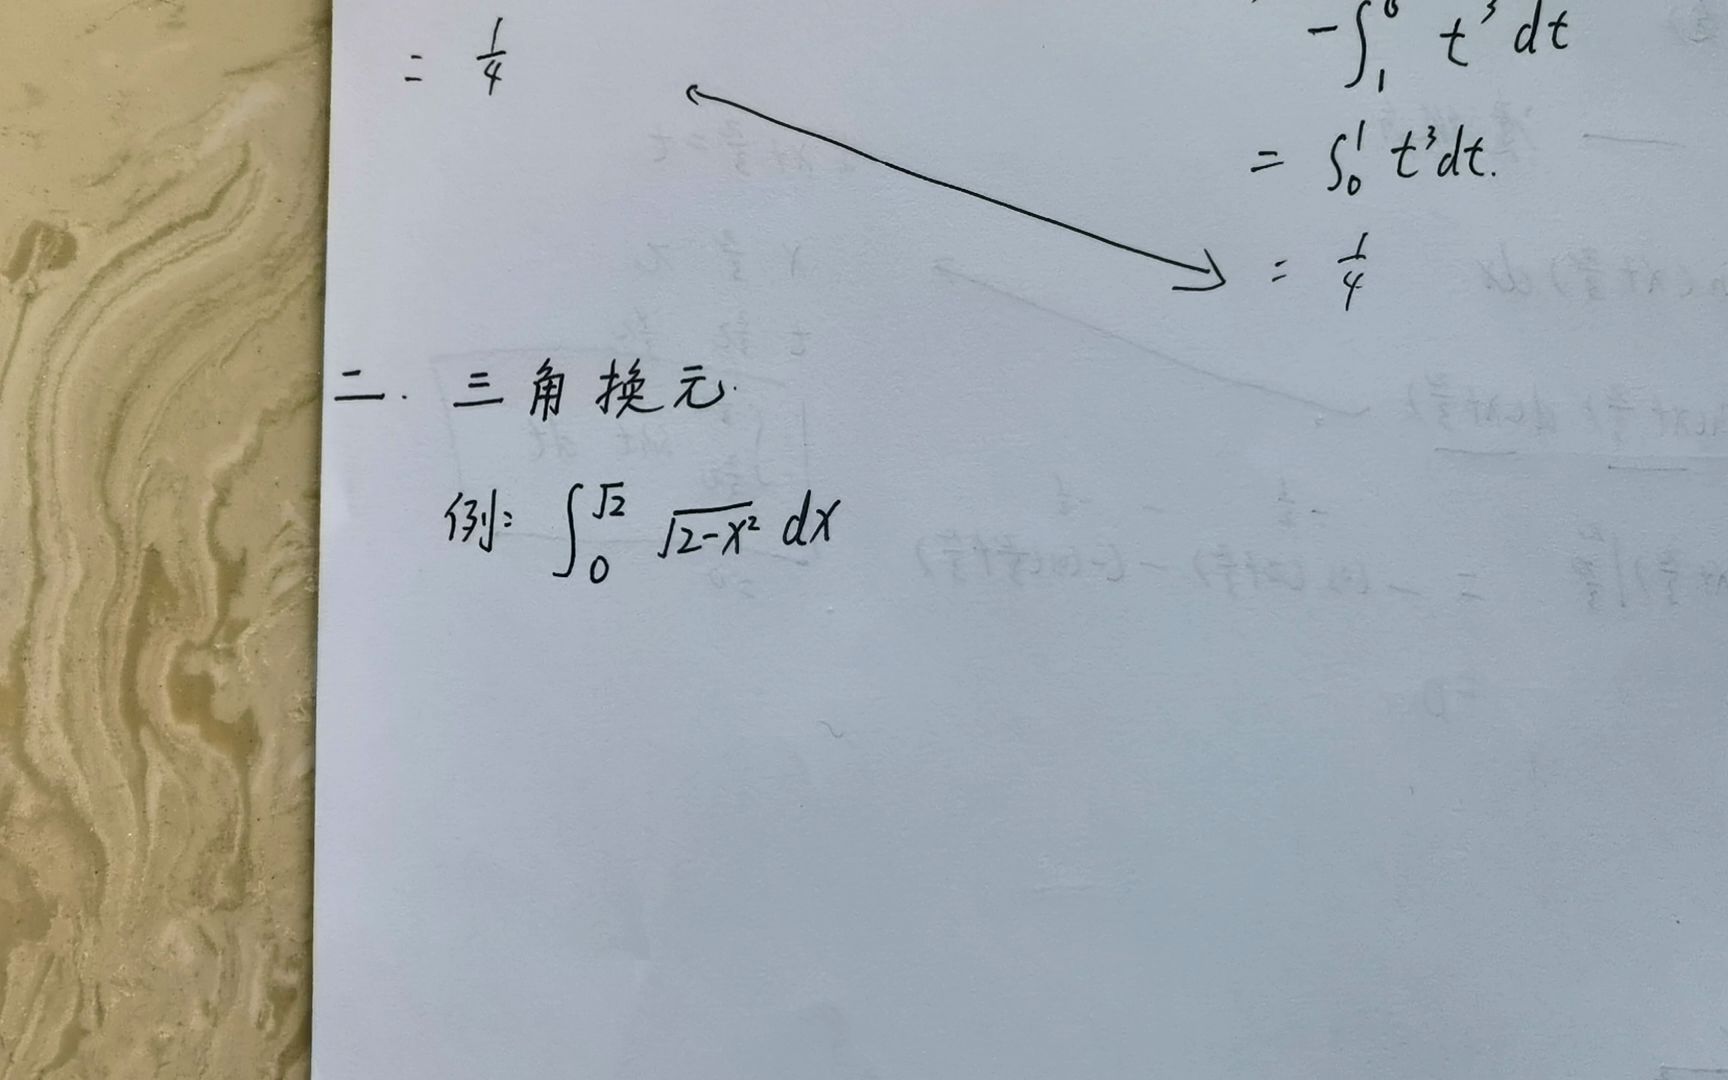 = 1/4
-∫₁⁰ t³ dt
= ∫₀¹ t³dt.
= 1/4
二. 三角换元.
例: ∫₀^√2 √(2-x²) dx